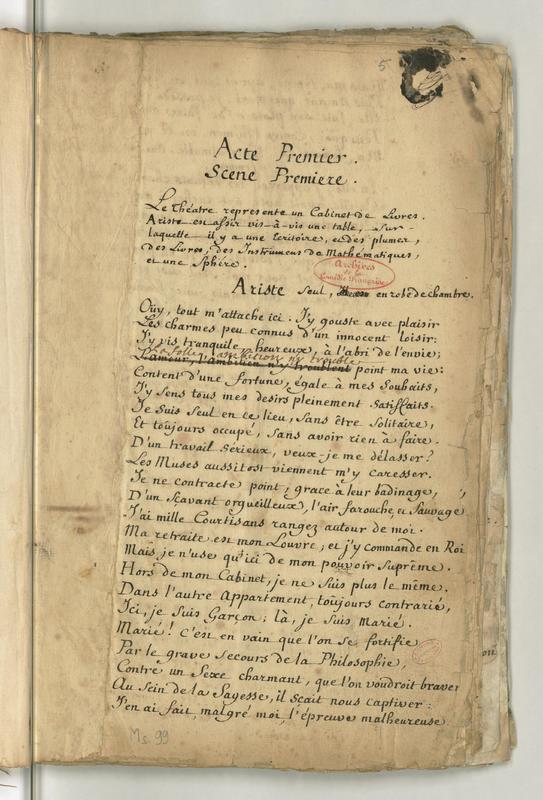 5
Acte Premier.
Scene Premiere.
Le Théatre represente un Cabinet de Livres.
Ariste est assis vis-à-vis une table, sur-
laquelle il y a une Ecritoire, et des plumes,
des Livres, des Instrumens de Mathématiques,
et une Sphère.
Archives
de la
Comédie Française
Ariste seul, en robe de chambre.
Oüy, tout m'attache ici. J'y gouste avec plaisir
Les charmes peu connus d'un innocent loisir:
J'y vis tranquile, heureux, à l'abri de l'envie;
La folle ambition n'y trouble
L'amour, l'ambition n'y troublent point ma vie:
Content d'une fortune, égale à mes Souhaits,
J'y sens tous mes desirs pleinement Satisfaits.
Je Suis Seul en ce lieu, Sans être Solitaire,
Et toûjours occupé, Sans avoir rien à faire.
D'un travail Sérieux, veux-je me délasser?
Les Muses aussitost viennent m'y caresser.
Je ne contracte point, grace à leur badinage,
D'un Scavant orgueilleux, l'air farouche, et Sauvage
J'ai mille Courtisans rangez autour de moi.
Ma retraite est mon Louvre, et j'y commande en Roi
Mais je n'use qu'ici de mon pouvoir Suprême.
Hors de mon Cabinet, je ne Suis plus le même.
Dans l'autre Appartement, toûjours contrarié,
Ici, je Suis Garçon; là, je Suis Marié.
Marié! C'est en vain que l'on Se fortifie
Par le grave Secours de la Philosophie,
Contre un Sexe charmant, que l'on voudroit braver
Au Sein de la Sagesse, il Scait nous captiver:
J'en ai fait, malgré moi, l'épreuve malheureuse
Ms. 99